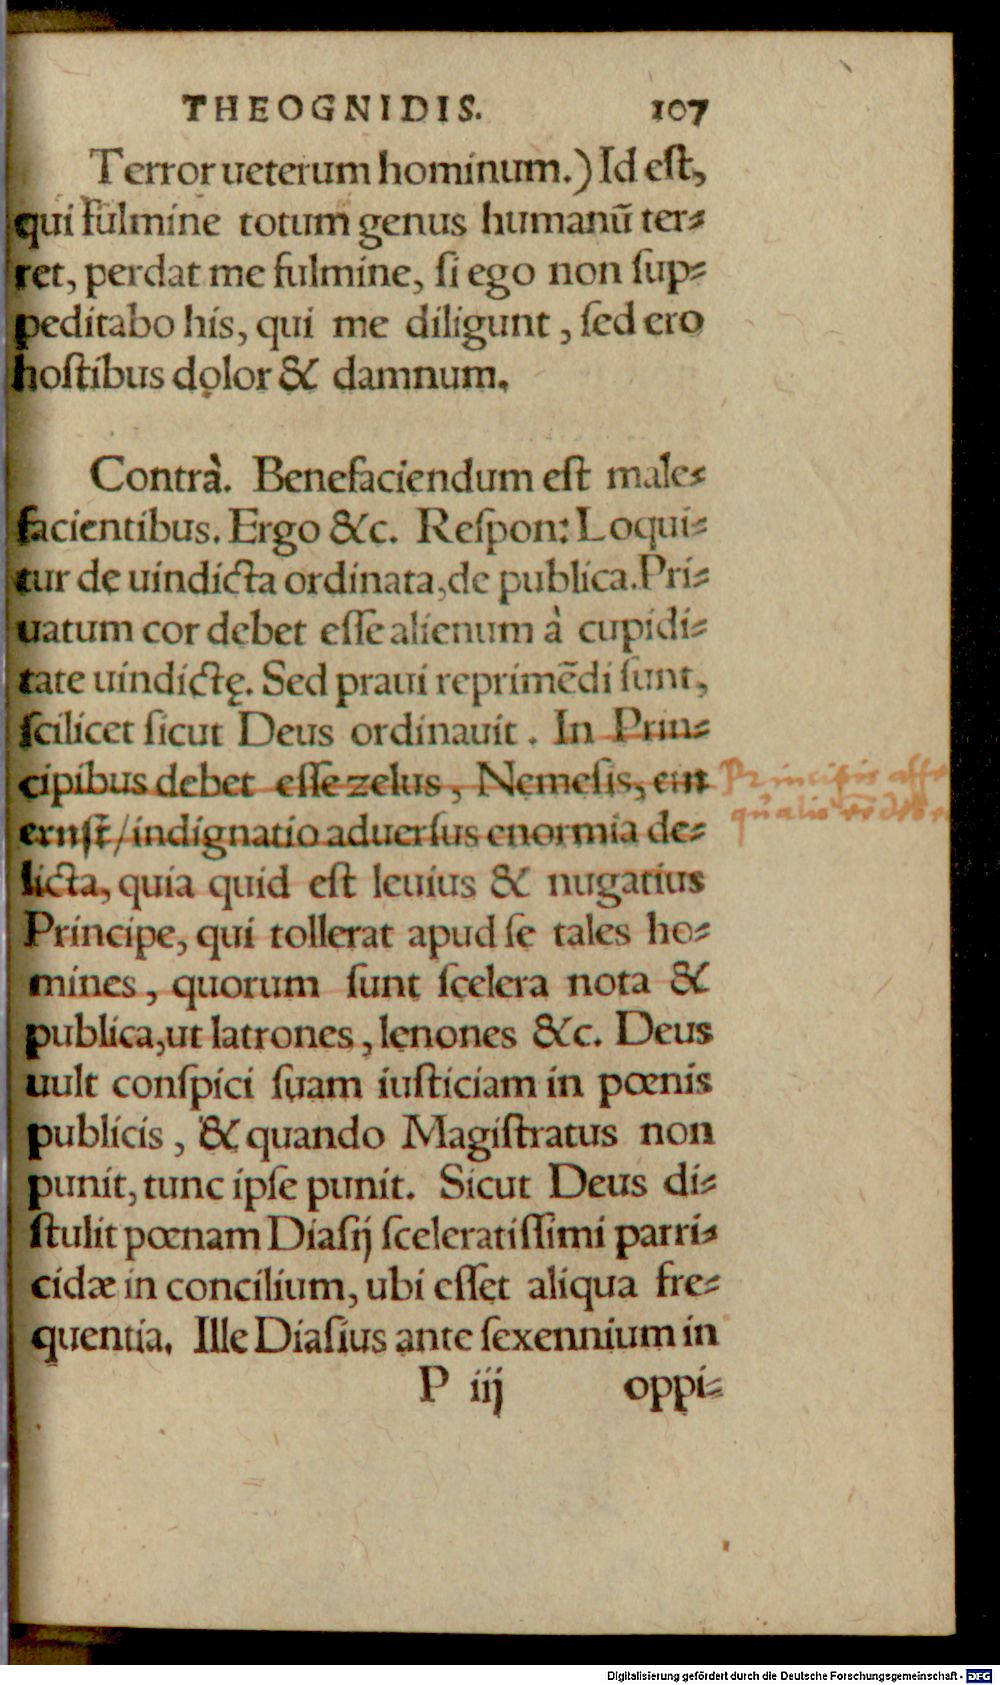 THEOGNIDIS. 107
Terror ueterum hominum.) Id eſt,
qui fulmine totum genus humanũ ter⸗
ret, perdat me fulmine, ſi ego non ſup⸗
peditabo his, qui me diligunt, ſed ero
hoſtibus dolor & damnum.
Contrà. Benefaciendum eſt male⸗
facientibus. Ergo &c. Reſpon: Loqui⸗
tur de uindicta ordinata, de publica. Pri⸗
uatum cor debet eſſe alienum à cupidi⸗
tate uindictę. Sed praui reprimẽdi ſunt,
ſcilicet ſicut Deus ordinauit. In Prin⸗
cipibus debet eſſe zelus, Nemeſis, ein
ernſt/ indignatio aduerſus enormia de⸗
licta, quia quid eſt leuius & nugatius
Principe, qui tollerat apud ſe tales ho⸗
mines, quorum ſunt ſcelera nota &
publica, ut latrones, lenones &c. Deus
uult conſpici ſuam iuſticiam in pœnis
publicis, & quando Magiſtratus non
punit, tunc ipſe punit. Sicut Deus di⸗
ſtulit pœnam Diaſij ſceleratiſſimi parri⸗
cidæ in concilium, ubi eſſet aliqua fre⸗
quentia. Ille Diaſius ante ſexennium in
P iij oppi⸗
Principis
qualis
Digitalisierung gefördert durch die Deutsche Forschungsgemeinschaft - DFG